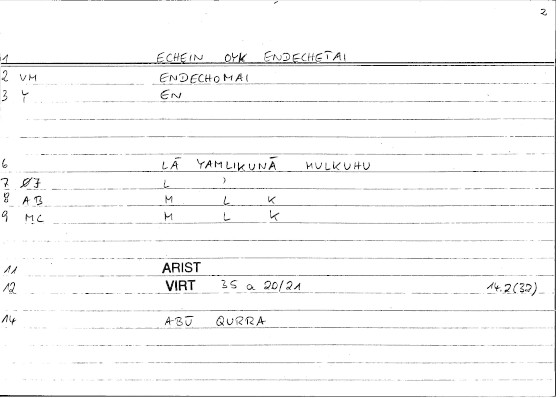 2
1 ECHEIN OYK ENDECHETAI
2 VM ENDECHOMAI
3 Y EN
6 LĀ YAMLIKUNĀ MULKUHU
7 ØJ L ʾ
8 AB M L K
9 MC M L K
11 ARIST
12 VIRT 35 a 20/21 14.2(32)
14 ABŪ QURRA